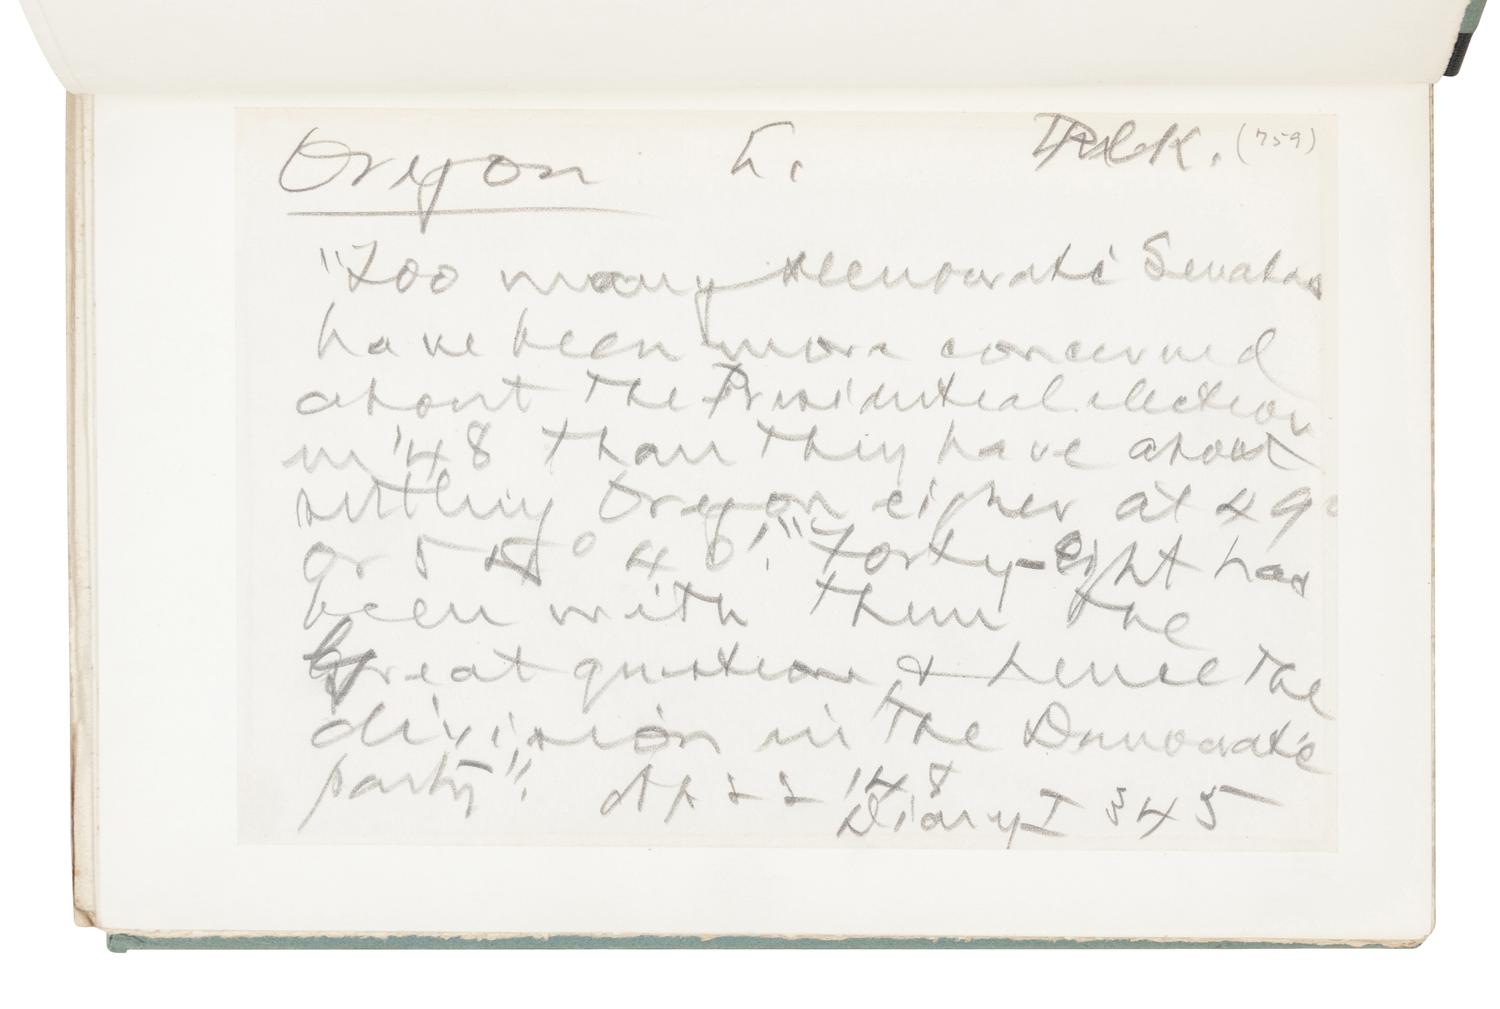 Oregon L. Polk. (759)
"Too many Democratic Senators
have been more concerned
about the Presidential election
in '48 than they have about
settling Oregon either at 49°
or 54° 40'." Forty-eight has
been with them the
Great question & hence the
division in the Democratic
party". Ap 22 '48
Diary I 345